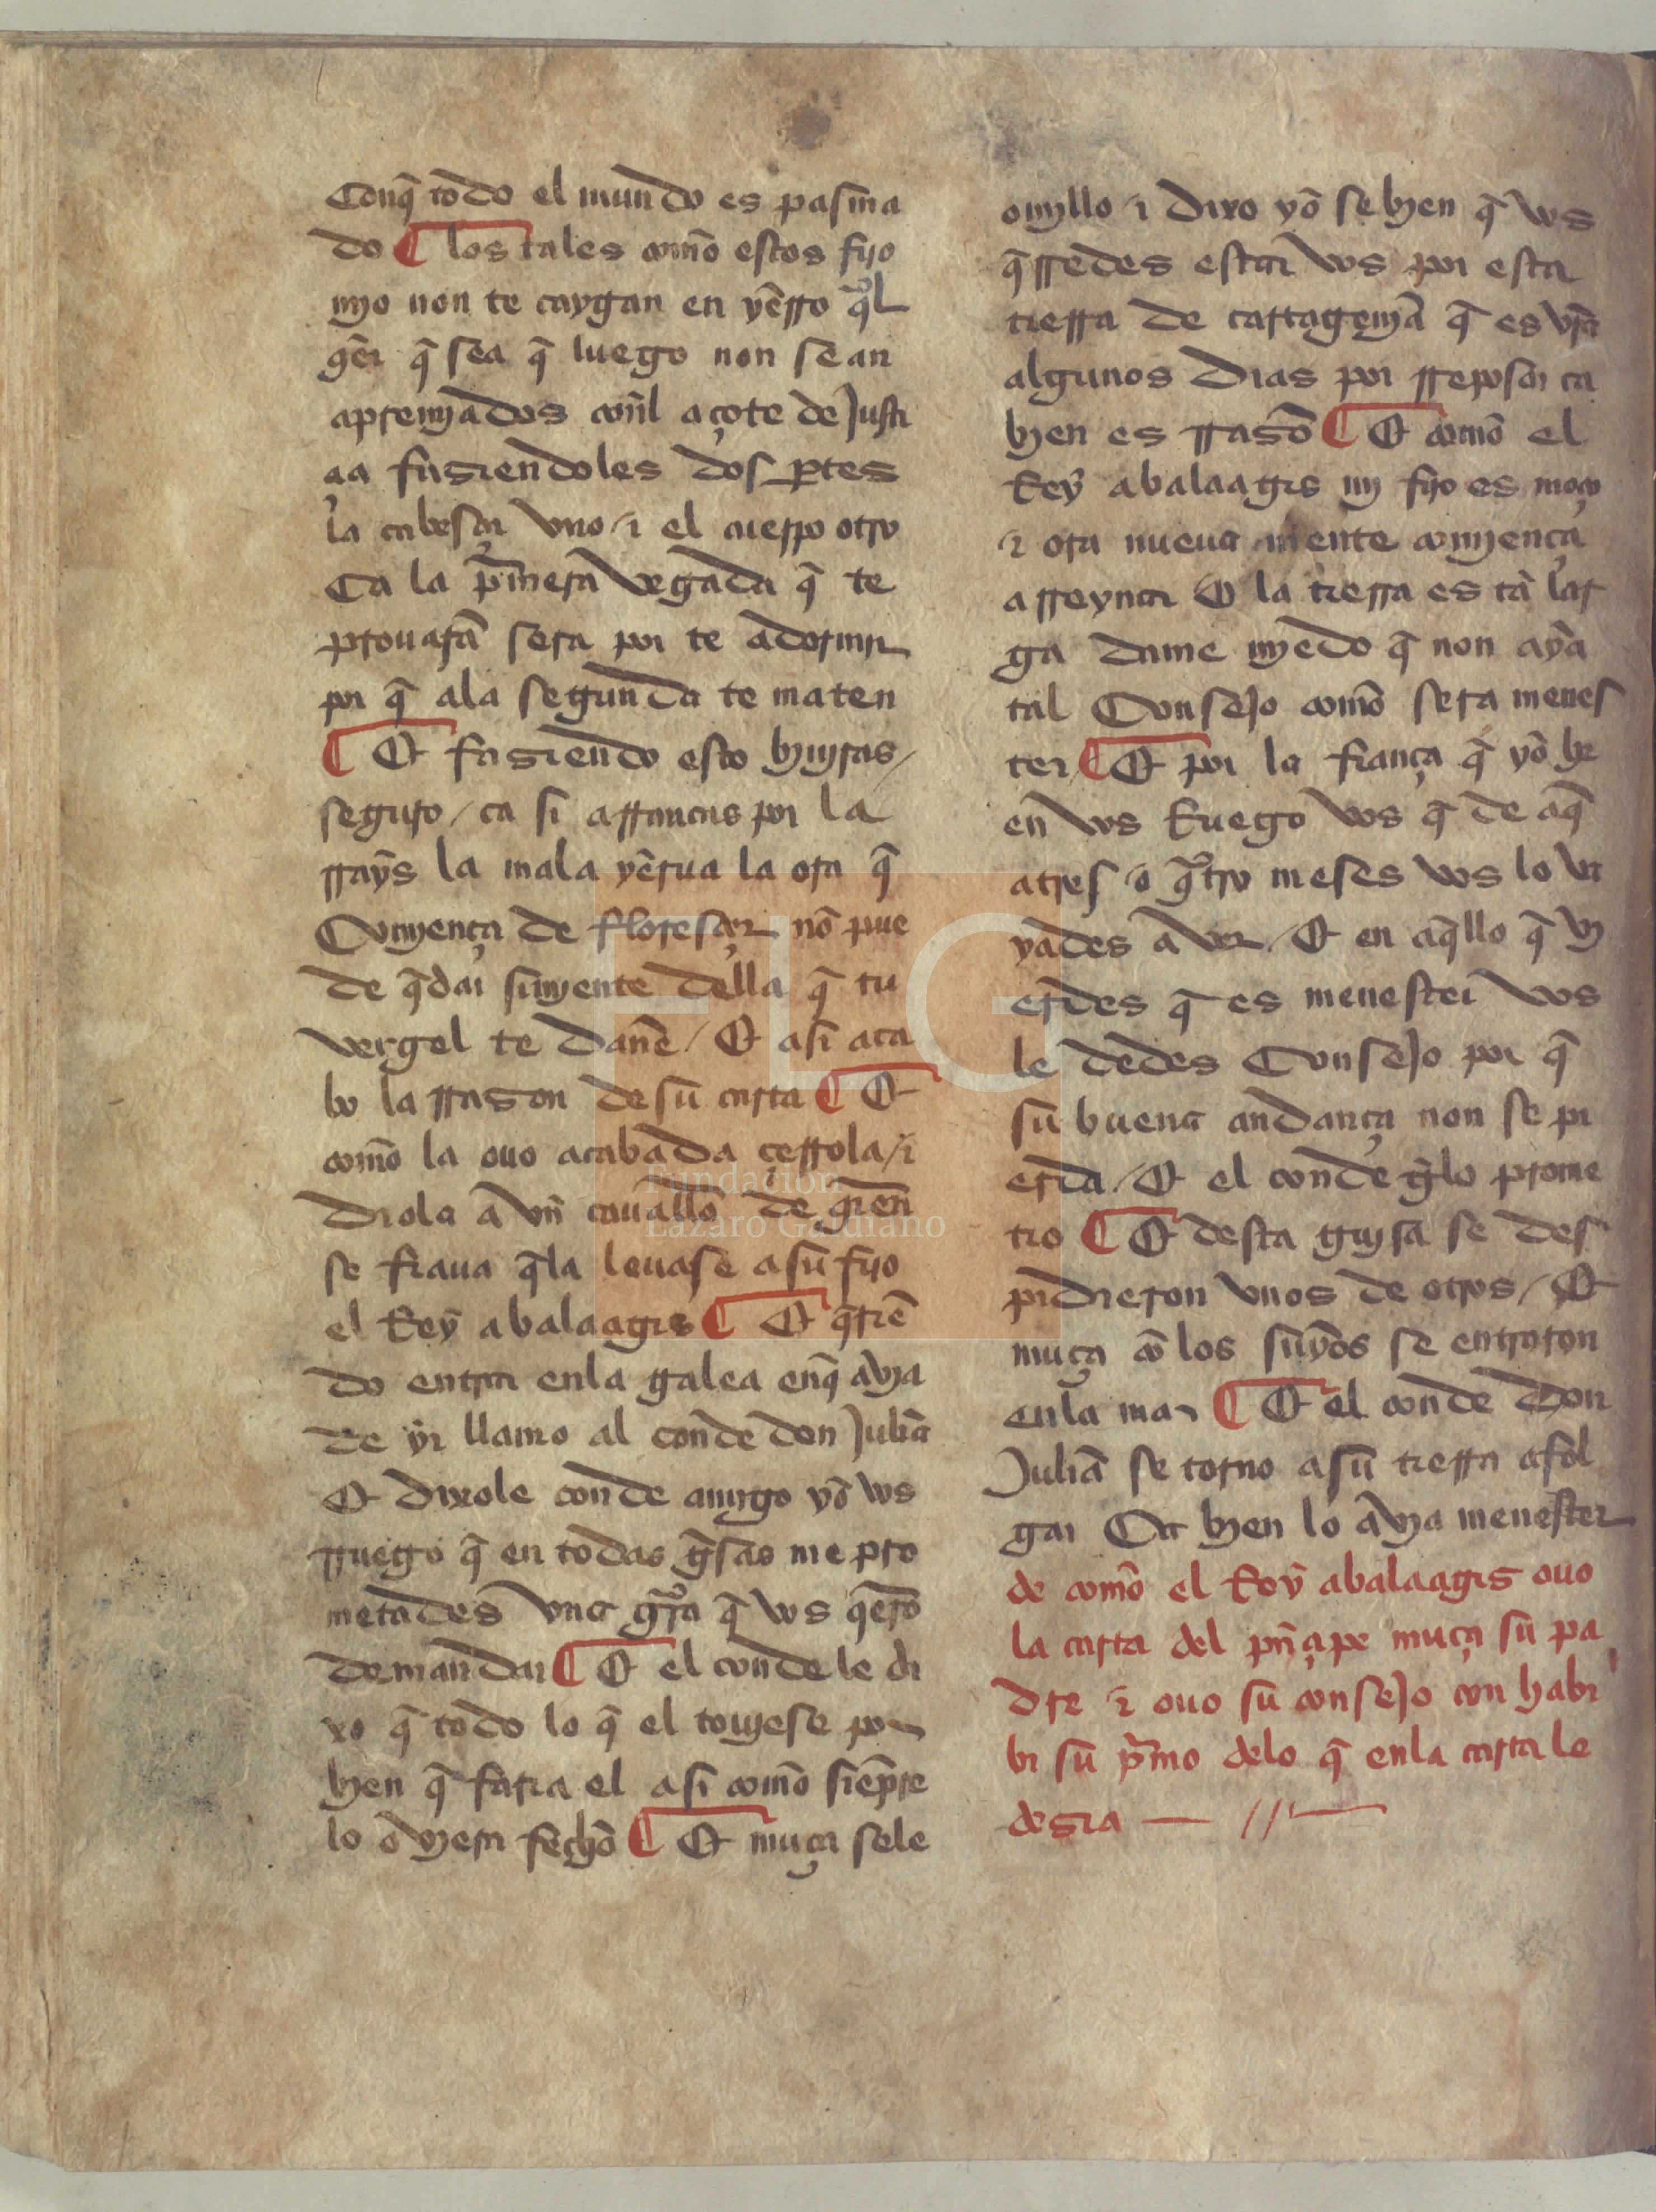 Conq̃ todo el mundo es pasma
do ¶ los tales com̃o estos fijo
mjo non te caygan en yẽrro qͣl
q̃er q̃ sea q̃ luego non sean
apremjados coñl açote de Justi
çia fasiendoles dos ꝑtes
la cabesça vno / ⁊ el cuerpo otro
Ca la pͥmera vegada q̃ te
prouarã sera por te adormir
por q̃ ala segunda te maten
¶ Et fasiendo esto bjujras /
seguro / ca si arrancas por la
rrays la mala yẽrua la ora q̃
Comjença de floresçer nõ pue
de q̃dar simjente della q̃ tu
vergel te dañe / Et asi aca
bo la rrason de sũ carta ¶ Et
com̃o la ouo acabada çerrola / ⁊
diola a vñ cauallõ de q̃en
se fiaua q̃la leuase a sũ fijo
el Rey abalaagis ¶ Et q̃riẽ
do entrar enla galea enq̃ avja
de yr llamo al conde don Juliã
Et dixole conde amigo yõ vos
rruego q̃ en todas g̃sas me pro
metades vna grͣa q̃ vos q̃ero
demandar ¶ Et el conde le di
xo q̃ todo lo q̃ el toujese por
bjen q̃ faria el asi com̃o siẽpre
lo ovjera fecho ¶ Et muça sele
omjllo ⁊ dixo yõ se bjen q̃ vos
q̃rredes estar vos por esta
tierra de cartagenjã q̃ es vr̃a
algunos dias por rreposar ca
bjen es rrasõ ¶ Et com̃o el
Rey abalaagis mj fijo es moço
⁊ ora nueua mente comjença
a rreynar Et la tierra es tã lar
ga dame mjedo q̃ non ayã
tal Consejo com̃o sera menes
ter ¶ Et por la fiança q̃ yõ he
en vos Ruego vos q̃ de aq̃
atres o qͣtro meses vos lo va
yades a ver / Et en aq̃llo q̃ vj
erdes q̃ es menester vos
le dedes Consejo por q̃
sũ buena andança non se pi
erda / Et el conde g̃lo prome
tio ¶ Et desta gujsa se des
pidieron vnos de otros / Et
muça cõ los suyõs se entraron
enla mar ¶ Et el conde Don
Juliã se torno a sũ tierra afol
gar Ca bjen lo avja menester
de com̃o el Rey abalaagis ouo
la carta del pñçipe muça sũ pa
dre ⁊ ouo su consejo con habi
bi sũ pͥmo delo q̃ enla carta le
desia — // —
FLG
Fundación
Lázaro Galdiano